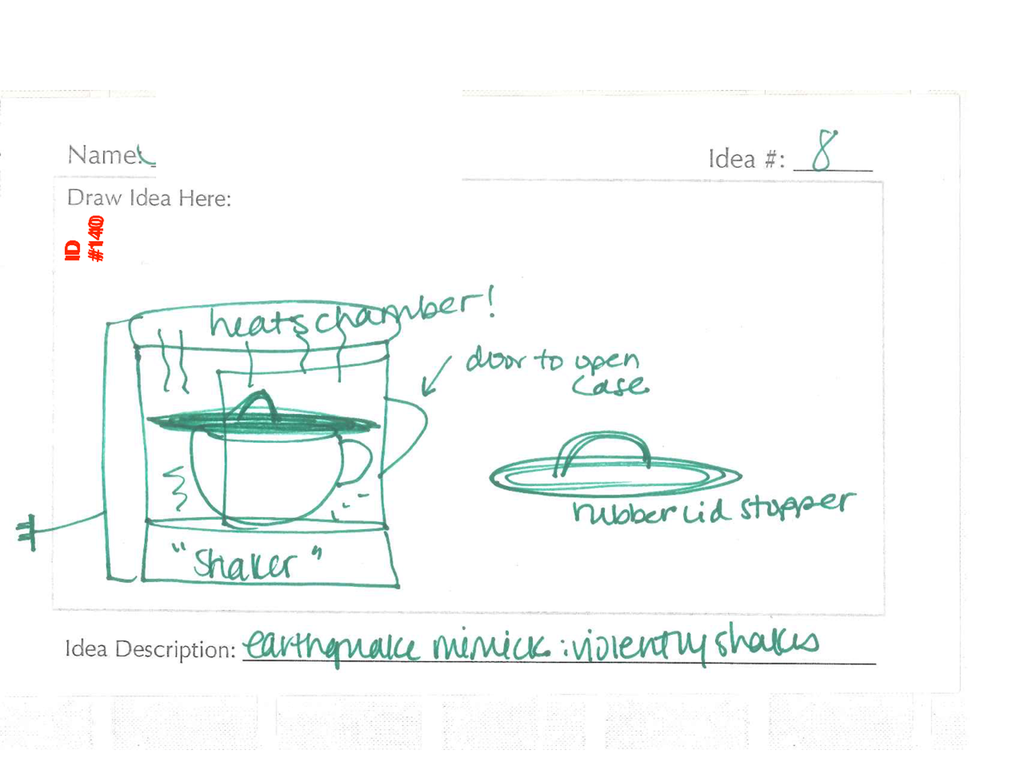 Name:
Idea #: 8
Draw Idea Here:
ID
#140
heats chamber!
door to open
case
rubber lid stopper
"Shaker"
Idea Description: earthquake mimick: violently shakes